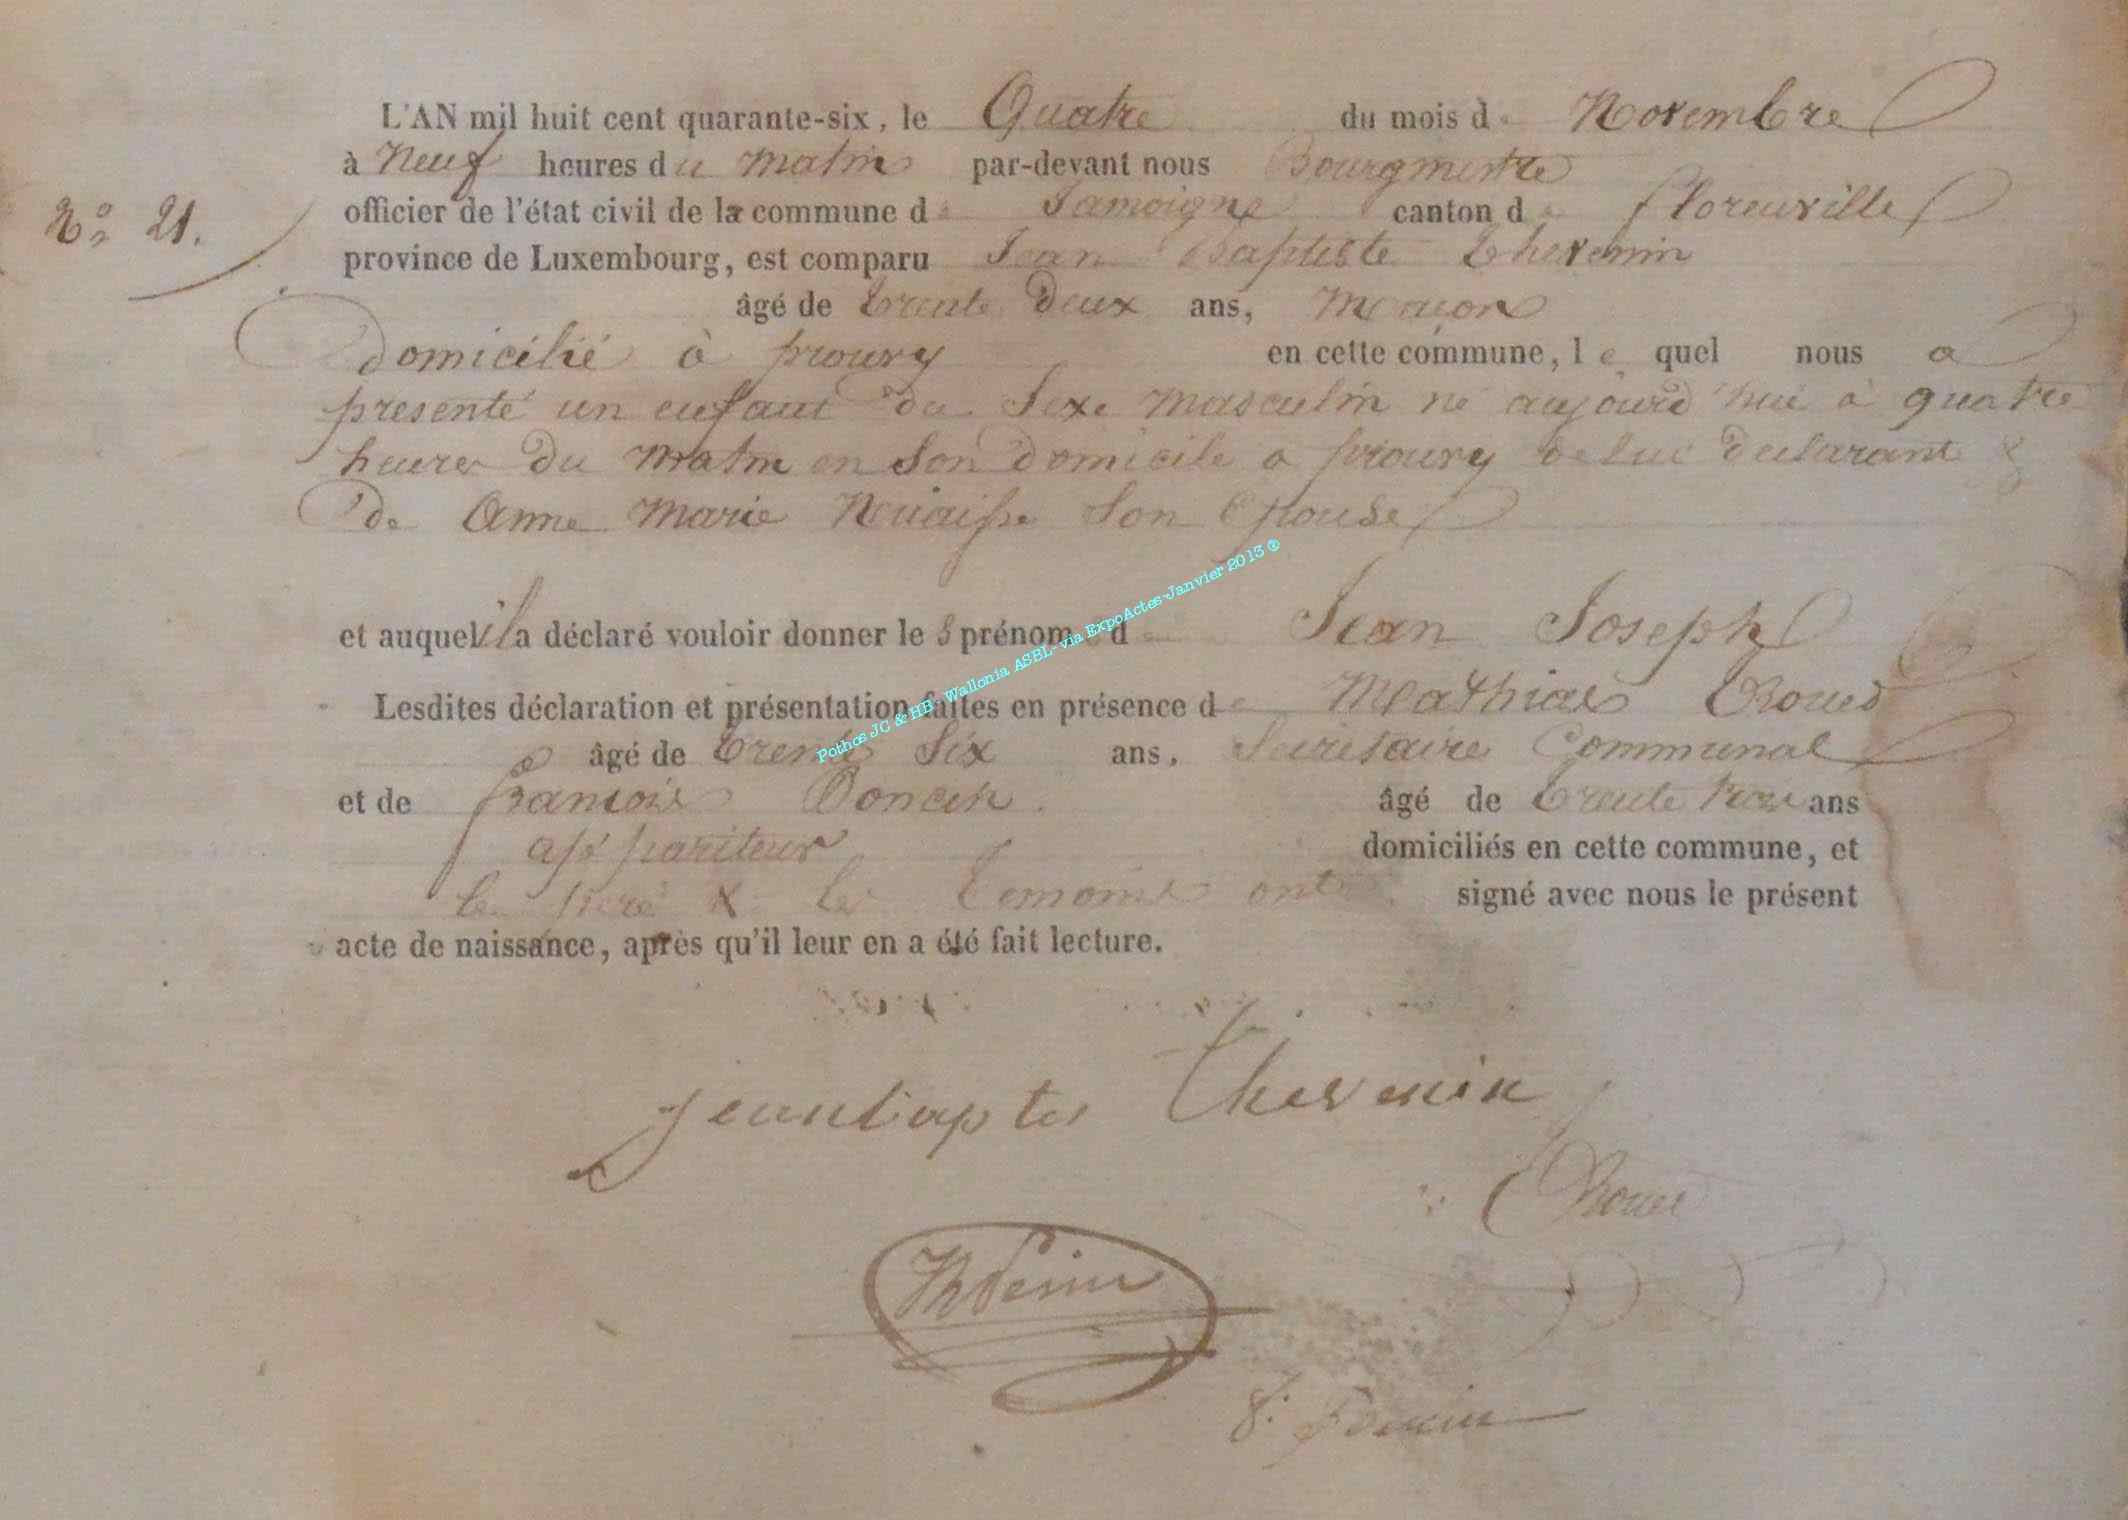 L'AN mil huit cent quarante-six, le Quatre du mois de Novembre
à Neuf heures du matin par-devant nous Bourgmestre
No 21. officier de l'état civil de la commune de Jamoigne canton de florenville
province de Luxembourg, est comparu Jean Baptiste Thevenin
âgé de trente deux ans, Maçon
domicilié à prouvy en cette commune, lequel nous a
presenté un enfant du Sexe masculin né aujourd'hui à quatre
heures du matin en son domicile a prouvy de lui declarant &
de Anne Marie son Epouse
et auquel il a déclaré vouloir donner les prénoms de Jean Joseph
Lesdites déclaration et présentation faites en présence de Mathias
âgé de trente Six ans, Secretaire Communal
et de francois Poncin âgé de trente trois ans
appariteur domiciliés en cette commune, et
le pere & les temoins ont signé avec nous le présent
acte de naissance, après qu'il leur en a été fait lecture.
Pothos JC & HB - Wallonia ASBL - via ExpoActes-Janvier 2013 ®
jeanbaptes Thevenin